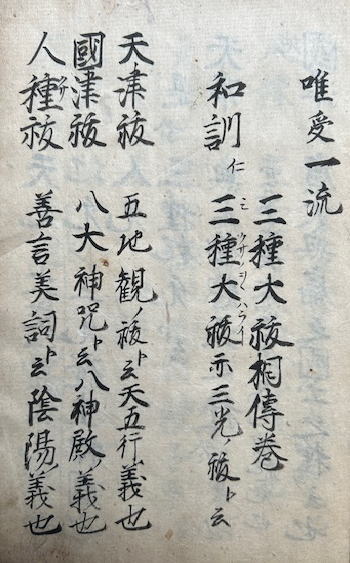 唯受一流
三種大祓相傳巻
和訓仁三種大祓亦三光ノ祓ト云
天津祓 五地観ノ祓ト云天五行ノ義也
國津祓 八大神咒ト云八神殿ノ義也
人種祓 善言美詞ト云陰陽ノ義也